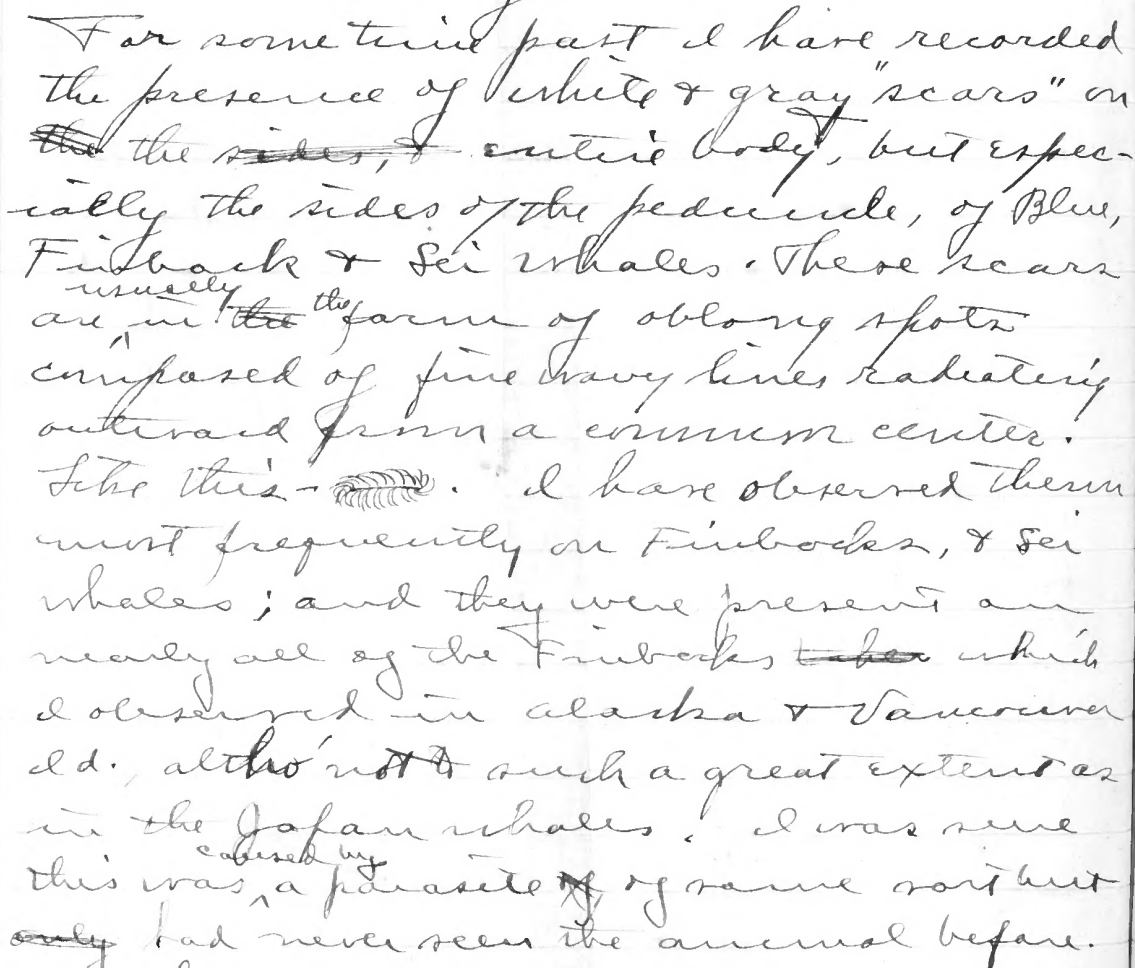 For some time past I have recorded
the presence of white & gray "scars" on
the the sides, & entire body, but espec-
ially the sides of the peduncle, of Blue,
Finback & Sei whales. These scars
usually
are in the the form of oblong spots
composed of fine wavy lines radiating
outward from a common center.
Like this - . I have observed them
most frequently on Finbacks, & Sei
whales; and they were present on
nearly all of the Finbacks taken which
I observed in Alaska & Vancouver
Id., altho' not to such a great extent as
in the Japan whales. I was sure
caused by
this was a parasite of of some sort but
only had never seen the animal before.